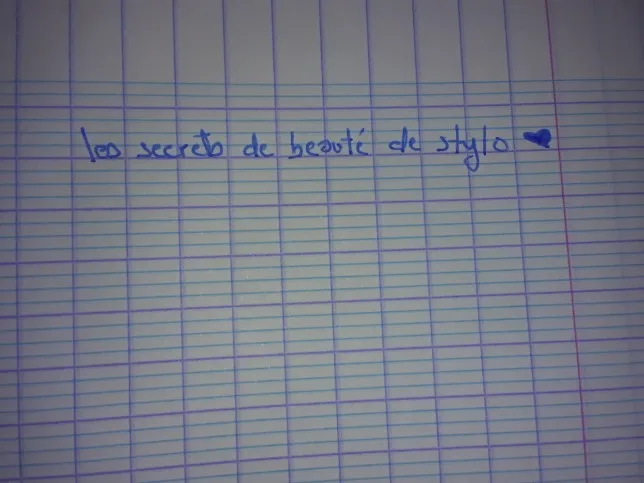 les secrets de beauté de stylo